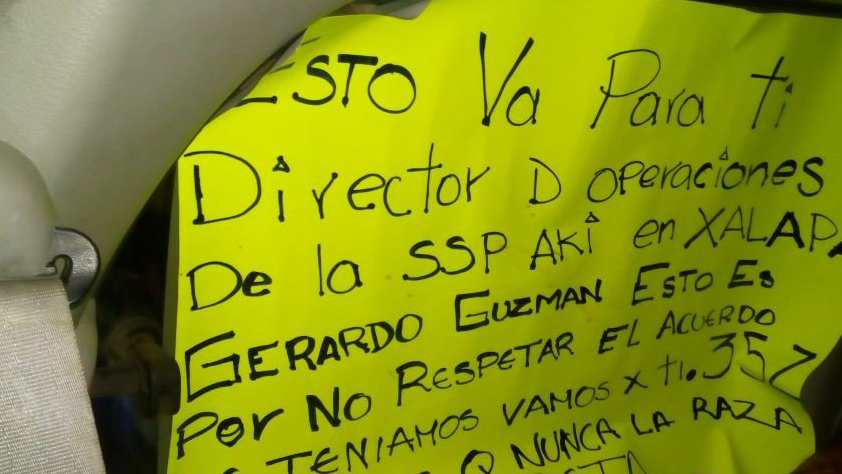 ESTO Va Para ti
Director D OPeraciones
De la SSP AKi en XALAP
GERARDO GUZMAN ESTO ES
POr NO RESPETAR EL ACUERDO
TENIAMOS VAMOS X ti. 35Z
Q NUNCA LA RAZA